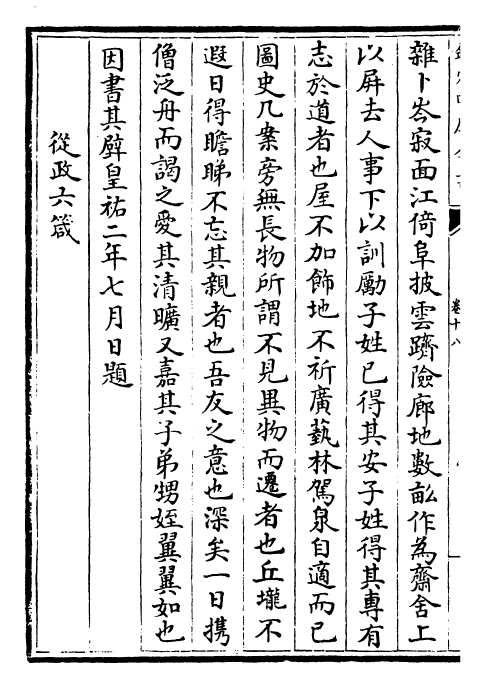 雜卜岑寂面江倚阜披雲躋險廊地數畝作為齋舍上
以屛去人事下以訓勵子姓已得其安子姓得其專有
志於道者也屋不加飾地不祈廣藝林駕泉自適而已
圖史几案旁無長物所謂不見異物而遷者也丘壠不
遐日得瞻睇不忘其親者也吾友之意也深矣一日携
僧泛舟而謁之愛其清曠又嘉其子弟甥姪翼翼如也
因書其壁皇祐二年七月日題
從政六箴
卷十八